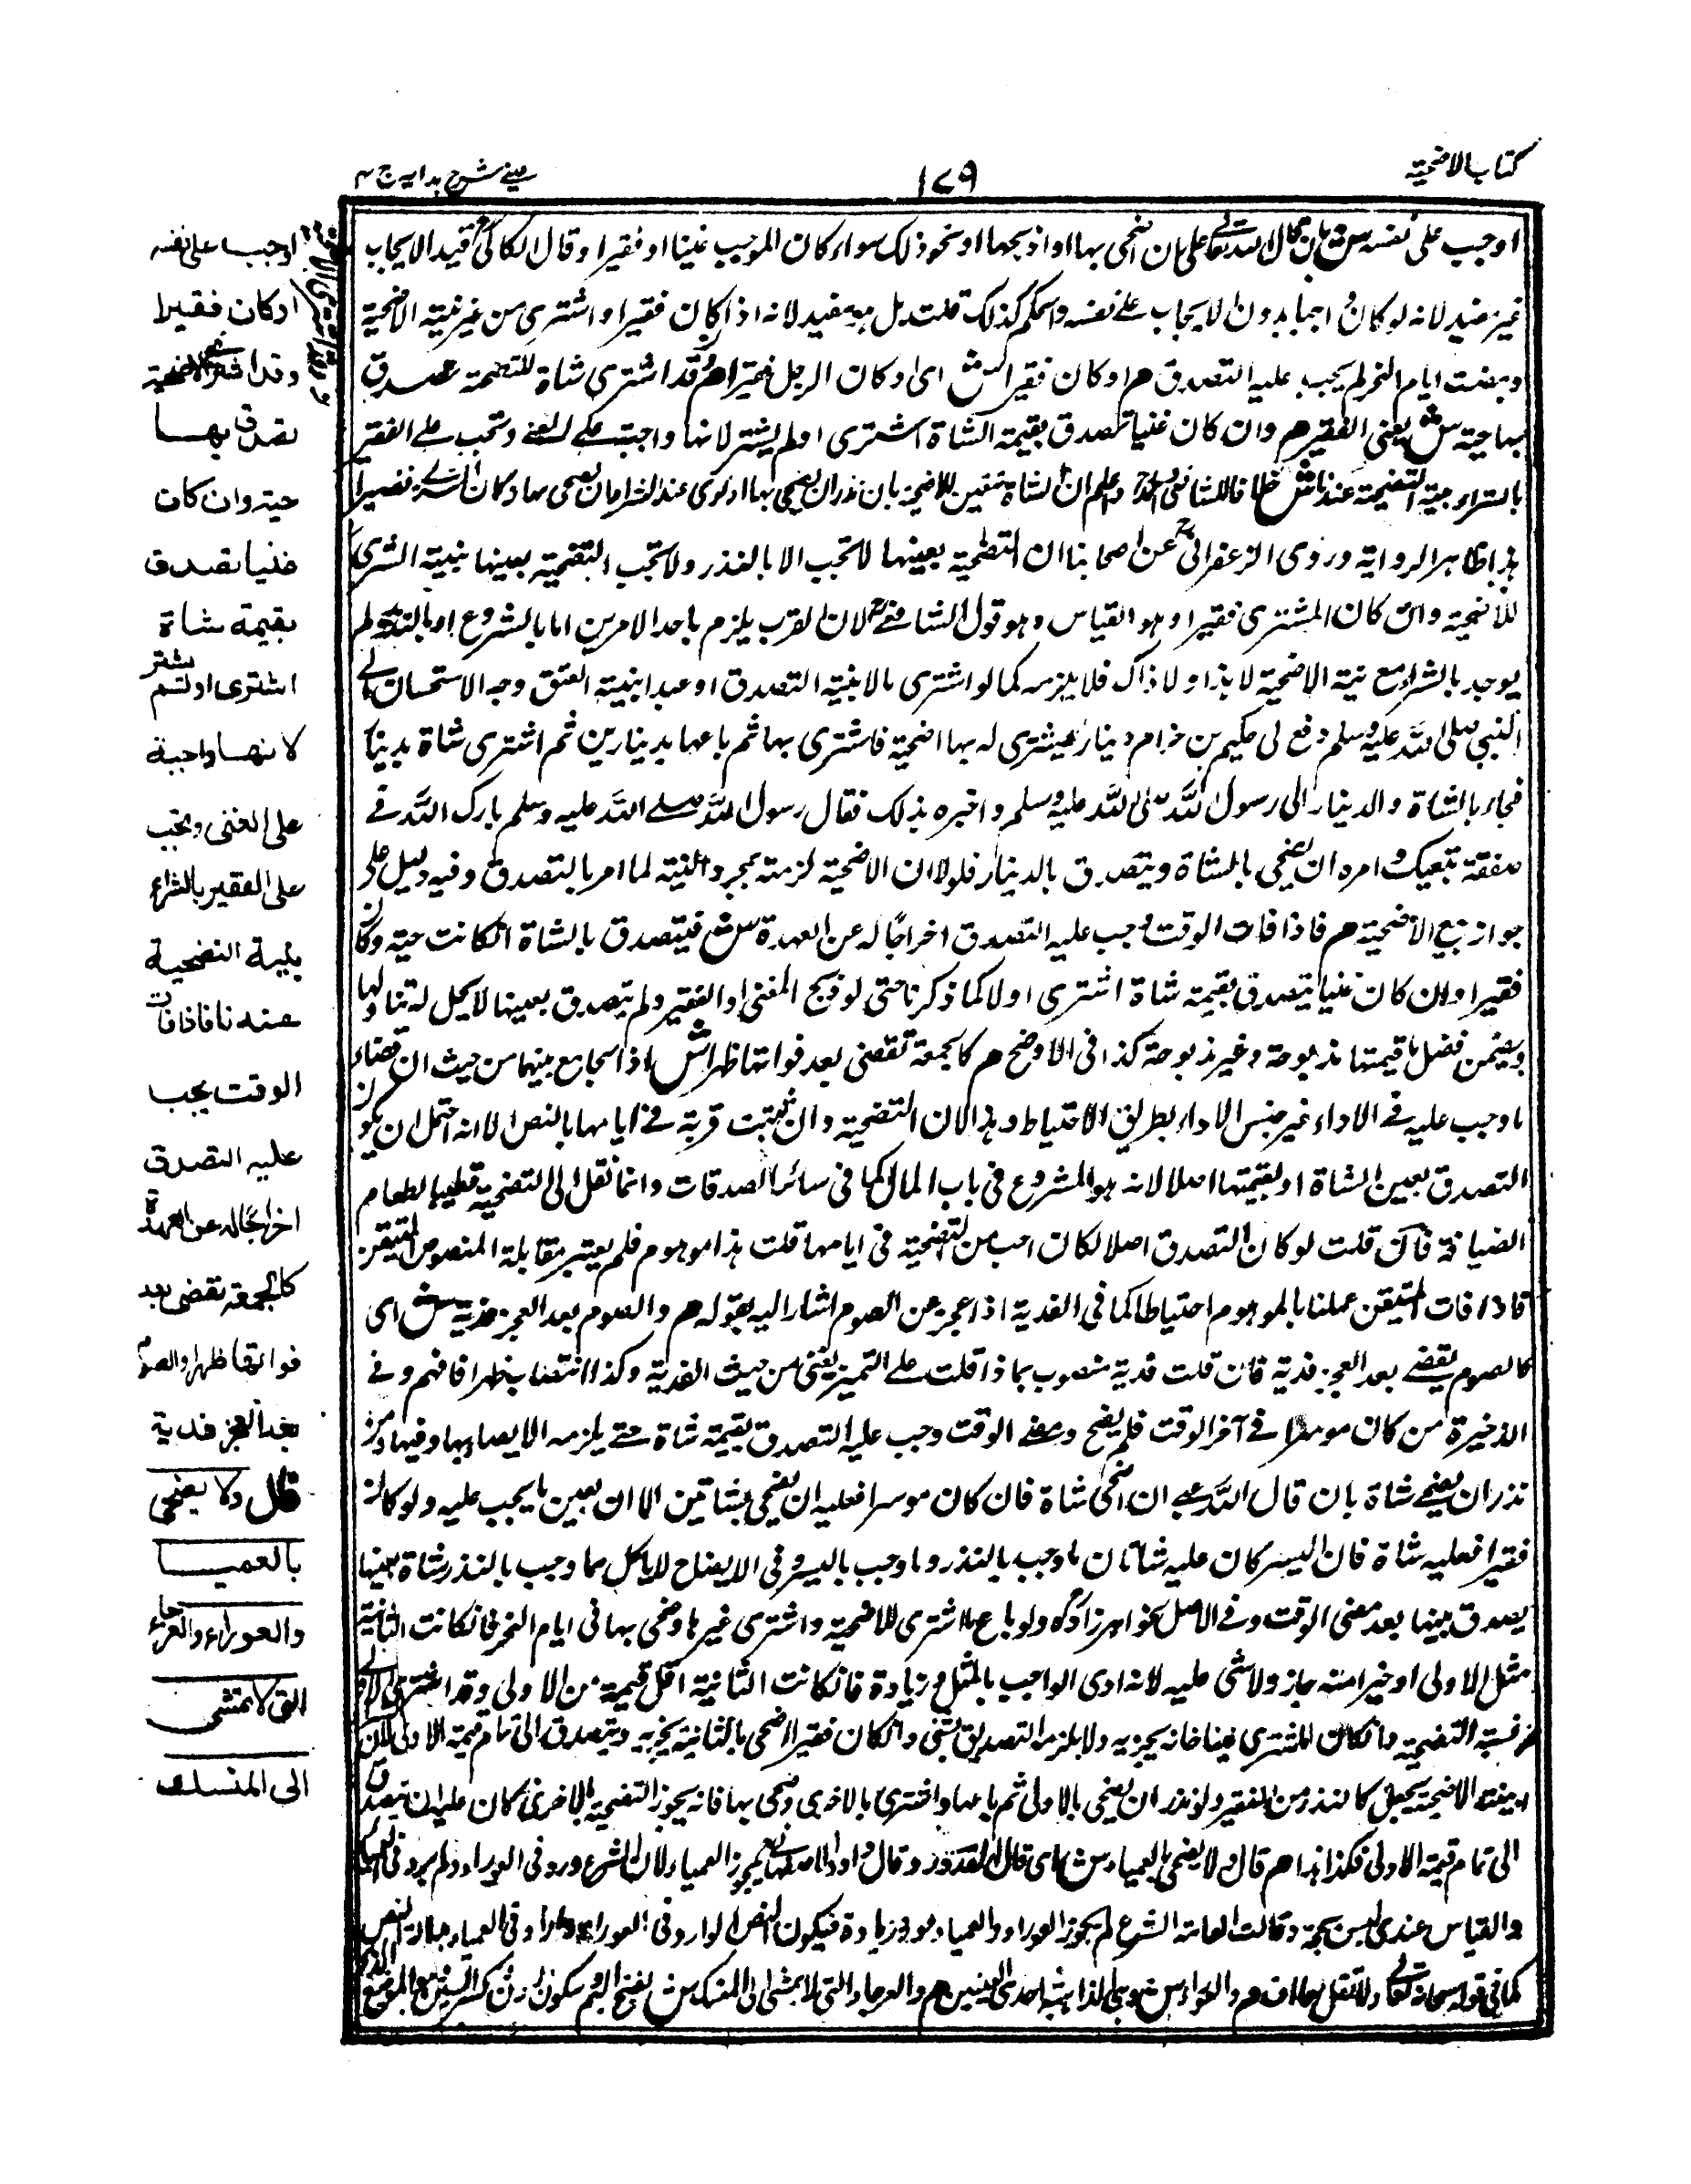 كتاب الاضحية
١٧٩
عيني شرح هدايه ج ٤
اوجب على نفسه ش بان قال لله تعالى علي ان اضحي بها او اذبحها او نحو ذلك سواء كان الموجب غنيا او فقيرا وقال الكاكي قيد الايجاب
غير مفيد لانه لو كان واجبا بدون الايجاب على نفسه والحكم كذلك قلت بل هو مفيد لانه اذا كان فقيرا واشترى من غير نية الاضحية
ومضت ايام النحر لم يجب عليه التصدق هم او كان فقيرا ش اى او كان الرجل فقيرا هم وقد اشترى شاة للتضحية تصدق
بها حية ش يعني الفقير هم وان كان غنيا تصدق بقيمة الشاة اشترى او لم يشتر لانها واجبة على الغني وتجب على الفقير
بالشراء بنية التضحية عندنا ش خلافا للشافعي واحمد واعلم ان الشاة تتعين للاضحية بان نذر ان يضحي بها او نوى عند الشراء ان يضحى بها وكان المشترى فقيرا
هذا ظاهر الرواية وروى الزعفراني عن اصحابنا ان التضحية بعينها لا تجب الا بالنذر ولا تجب التضحية بعينها بنية الشرى
للاضحية وان كان المشترى فقيرا وهو القياس وهو قول الشافعي لان القرب يلزم باحد الامرين اما بالشروع او بالنذر ولم
يوجد بالشراء مع نية الاضحية لا هذا ولا ذاك فلا يلزمه كما لو اشترى مالا بنية التصدق او عبدا بنية العتق وجه الاستحسان ان
النبي صلى الله عليه وسلم دفع الى حكيم بن حزام دينارا ليشترى له بها اضحية فاشترى بها ثم باعها بدينارين ثم اشترى شاة بدينار
فجاء بالشاة والدينار الى رسول الله صلى الله عليه وسلم واخبره بذلك فقال رسول الله صلى الله عليه وسلم بارك الله في
صفقة يمينك وامره ان يضحي بالشاة ويتصدق بالدينار فلولا ان الاضحية لزمته بمجرد النية لما امر بالتصدق وفيه دليل على
جواز بيع الاضحية هم فاذا فات الوقت وجب عليه التصدق اخراجا له عن العهدة ش فيتصدق بالشاة ان كانت حية وكان
فقيرا وان كان غنيا يتصدق بقيمة شاة اشترى او لا كما ذكرنا حتى لو ذبح الغني او الفقير ولم يتصدق بعينها لا يحل له تناولها
ويضمن فضل ما قيمتها مذبوحة وغير مذبوحة كذا في الاوضح هم كالجمعة تقضى بعد فواتها ظهرا ش اذ الجامع بينهما من حيث ان قضاء
ما وجب عليه في الاداء غير جنس الاداء بطريق الاحتياط وهذا لان التضحية وان ثبتت قربة في ايامها بالنص الا انه احتمل ان يكون
التصدق بعين الشاة او بقيمتها اصلا لانه هو المشروع في باب المال كما في سائر الصدقات وانما نقل الى التضحية تطييبا لطعام
الضيافة فان قلت لو كان التصدق اصلا لكان احب من التضحية في ايامها قلت هذا موهوم فلم يعتبر بمقابلة المنصوص المتيقن
فاذا فات المتيقن عملنا بالموهوم احتياطا كما في الفدية اذا عجز عن الصوم اشار اليه بقوله هم والصوم بعد العجز فدية ش اى
كالصوم يقضى بعد العجز فدية فان قلت فدية منصوب بماذا قلت على التمييز يعني من حيث الفدية وكذا انتصاب ظهرا فافهم وفي
الذخيرة من كان موسرا في آخر الوقت فلم يضح ومضى الوقت وجب عليه التصدق بقيمة شاة حتى يلزمه الايصاء بها وفيها ومن
نذر ان يضحي شاة بان قال لله علي ان اضحى شاة فان كان موسرا فعليه ان يضحي بشاتين الا ان يعين ما يجب عليه ولو كان
فقيرا فعليه شاة فان ايسر كان عليه شاتان ما وجب بالنذر وما وجب باليسر وفي الايضاح لا ياكل مما وجب بالنذر شاة بعينها
يصدق بعينها بعد مضى الوقت وفي الاصل لخواهر زاده ولو باع ما اشترى للاضحية واشترى غيرها وضحى بها في ايام النحر فان كانت الثانية
مثل الاولى او خيرا منه جاز ولا شئ عليه لانه ادى الواجب بالمثل وزيادة فان كانت الثانية اقل قيمة من الاولى وقد اشترى الاولى
بنية التضحية فان كان المشترى غنيا فانه يجزيه ولا يلزمه التصدق بشئ وان كان فقيرا اضحى بالثانية يجزيه ويتصدق الى تمام قيمة الاولى لان
نية الاضحية يجعل كالنذر من الفقير ولو نذر ان يضحي بالاولى ثم باعها واشترى بالاخرى وضحى بها فانه يجوز التضحية بالاخرى وكان عليه ان يتصدق
الى تمام قيمة الاولى فكذا هذا هم قال ولا يضحي بالعمياء ش اى قال القدوري وقال داود الاصفهاني يجوز العمياء لان الشرع ورد في العوراء ولم يرد في العمياء
والقياس عندى ليس بحجة وقالت العامة الشرع لم يجوز العوراء والعمياء عور وزيادة فيكون النص الوارد في العوراء واردا في العمياء بدلالة النص
كما في قوله سبحانه وتعالى ولا تقل لهما اف هم والعوراء ش وهي الذاهبة احدى العينين هم والعرجاء التي لا تمشى الى المنسك ش بفتح الميم وسكون النون وكسر السين وهو الموضع
اوجب على نفسه
او كان فقيرا
وقد اشترى الاضحية
تصدق بها
حية وان كان
غنيا تصدق
بقيمة شاة
اشترى او لم يشتر
لانها واجبة
على الغنى وتجب
على الفقير بالشراء
بنية التضحية
عندنا فاذا فات
الوقت يجب
عليه التصدق
اخراجا له عن العهدة
كالجمعة تقضى بعد
فواتها ظهرا والصوم
بعد العجز فدية
قال ولا يضحى
بالعميا
والعوراء والعرجاء
التي لا تمشى
الى المنسك